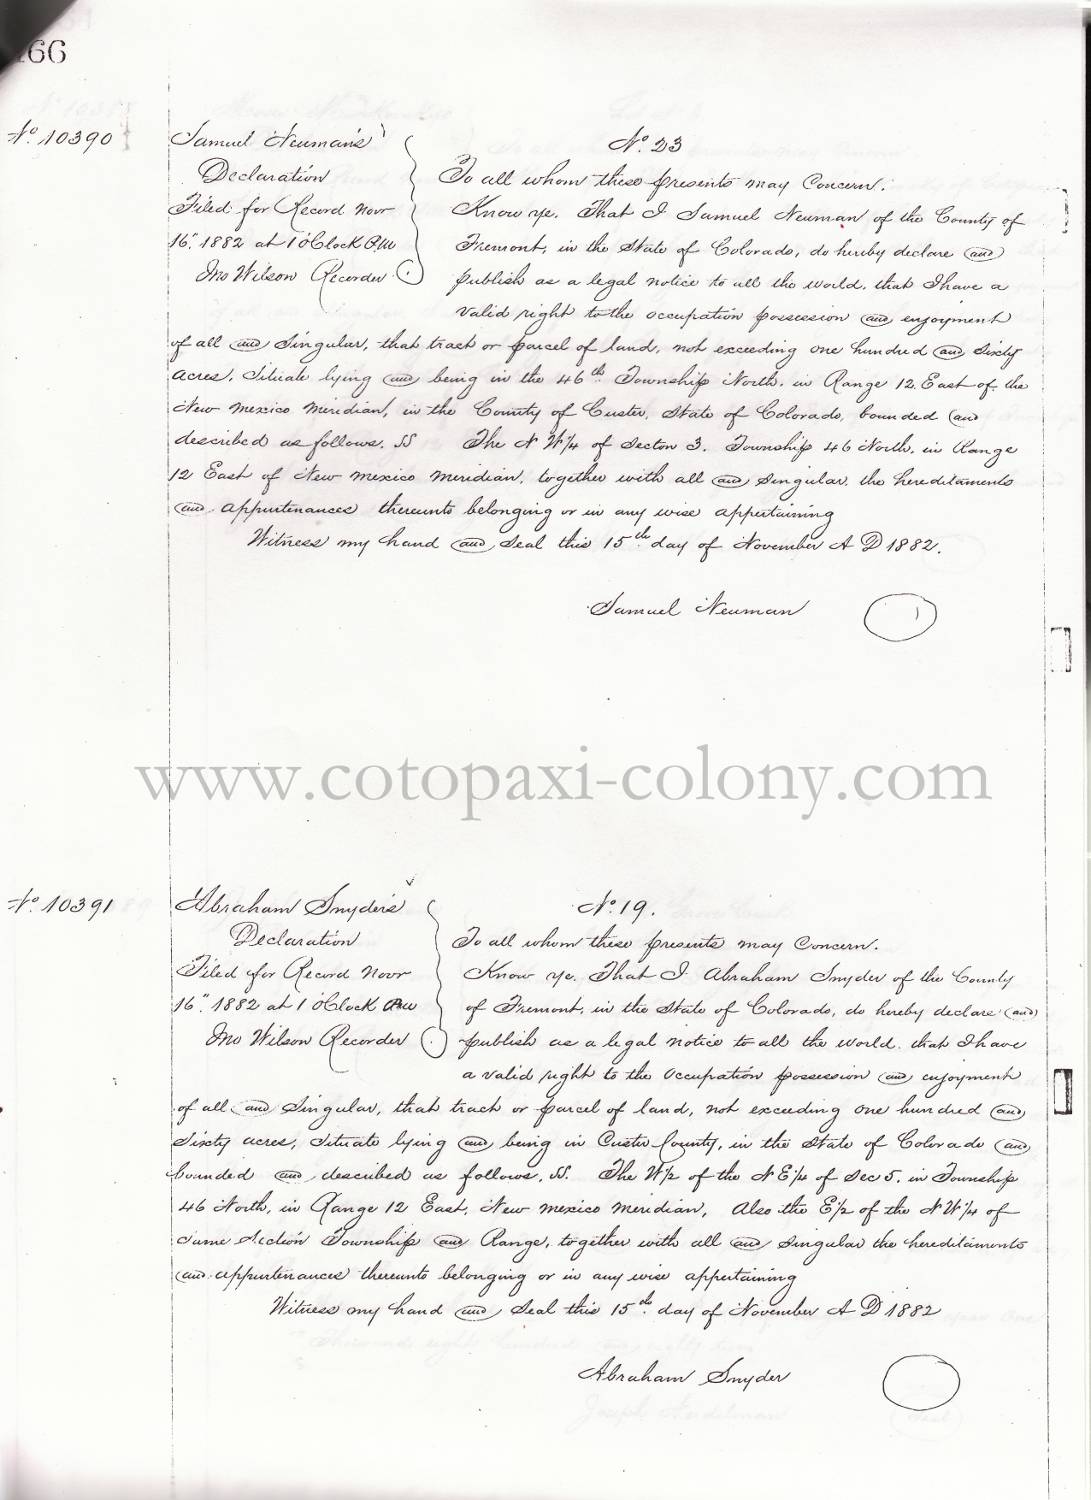 166
No. 10390
Samuel Neuman's
Declaration
Filed for Record Novr
16" 1882 at 1 O'Clock P.M
Jno Wilson Recorder
No. 23
To all whom these presents may Concern.
Know ye. That I Samuel Neuman of the County of
Fremont, in the State of Colorado, do hereby declare and
publish as a legal notice to all the world, that I have a
valid right to the occupation possession and enjoyment
of all and Singular, that tract or parcel of land, not exceeding one hundred and Sixty
acres, Situate lying and being in the 46th Township North, in Range 12, East of the
New Mexico Meridian, in the County of Custer, State of Colorado, bounded and
described as follows. SS The N W 1/4 of Secton 3. Township 46 North, in Range
12 East of New Mexico Meridian, together with all and Singular, the hereditaments
and appurtenances thereunto belonging or in any wise appertaining
Witness my hand and Seal this 15th day of November A D 1882.
Samuel Neuman
www.cotopaxi-colony.com
No. 10391
Abraham Snyder's
Declaration
Filed for Record Novr
16" 1882 at 1 O'Clock P.M
Jno Wilson Recorder
No. 19.
To all whom these presents may Concern.
Know ye. That I Abraham Snyder of the County
of Fremont, in the State of Colorado, do hereby declare and
publish as a legal notice to all the world, that I have
a valid right to the occupation possession and enjoyment
of all and Singular, that tract or parcel of land, not exceeding one hundred and
Sixty acres, Situate lying and being in Custer County, in the State of Colorado and
bounded and described as follows, SS. The W 1/2 of the N E 1/4 of Sec 5, in Township
46 North, in Range 12 East, New Mexico Meridian, Also the E 1/2 of the N W 1/4 of
same Section Township and Range, together with all and Singular the hereditaments
and appurtenances thereunto belonging or in any wise appertaining
Witness my hand and Seal this 15th day of November A D 1882
Abraham Snyder